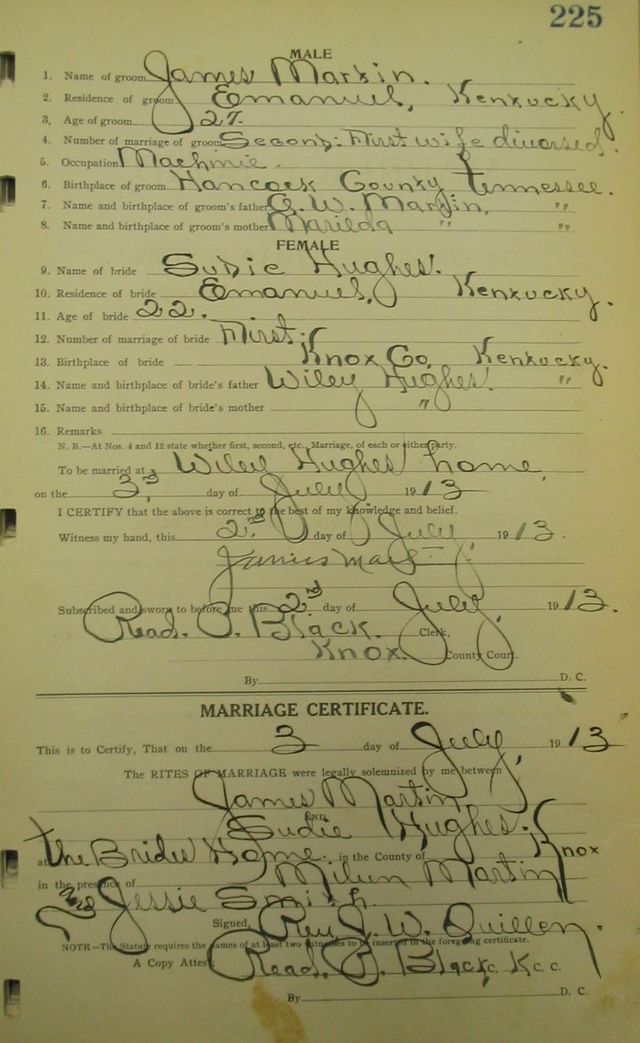 225
MALE
1. Name of groom James Martin.
2. Residence of groom Emanuel, Kentucky.
3. Age of groom 27.
4. Number of marriage of groom Second: First wife divorsed.
5. Occupation Machinie.
6. Birthplace of groom Hancock County Tennessee.
7. Name and birthplace of groom's father G. W. Martin, " "
8. Name and birthplace of groom's mother Marilda " " " "
FEMALE
9. Name of bride Sudie Hughes.
10. Residence of bride Emanuel, Kentucky.
11. Age of bride 22.
12. Number of marriage of bride First.
13. Birthplace of bride Knox Co, Kentucky.
14. Name and birthplace of bride's father Wiley Hughes. "
15. Name and birthplace of bride's mother "
16. Remarks
N. B.—At Nos. 4 and 12 state whether first, second, etc., Marriage, of each or either party.
To be married at Wiley Hughes home,
on the 3rd day of July 1913
I CERTIFY that the above is correct to the best of my knowledge and belief.
Witness my hand, this 2nd day of July 1913.
James Mart
Subscribed and sworn to before me this 2nd day of July, 1913.
Read. P. Black. Clerk,
Knox. County Court.
By D. C.
MARRIAGE CERTIFICATE.
This is to Certify, That on the 3 day of July, 1913
The RITES OF MARRIAGE were legally solemnized by me between
James Martin
AND
Sudie Hughes.
at the Brides Home. in the County of Knox
in the presence of Milun Martin
and Jessie Smith.
Signed, Rev J. W. Quillen.
NOTE—The Statute requires the names of at least two witnesses to be inserted in the foregoing certificate.
A Copy Attest Read. P. Black C. K C. C.
By D. C.